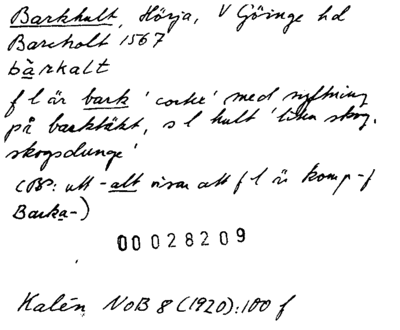 Barkhult, Hörja, V Göinge hd
Barcholt 1567
bàrkalt
f l är bark 'cortex' med syftning
på barktäkt, s l hult 'liten skog,
skogsdunge'
(Obs: utt -alt visar att f l är komp-f
Barka-)
00028209
Kalén, NoB 8 (1920):100 f